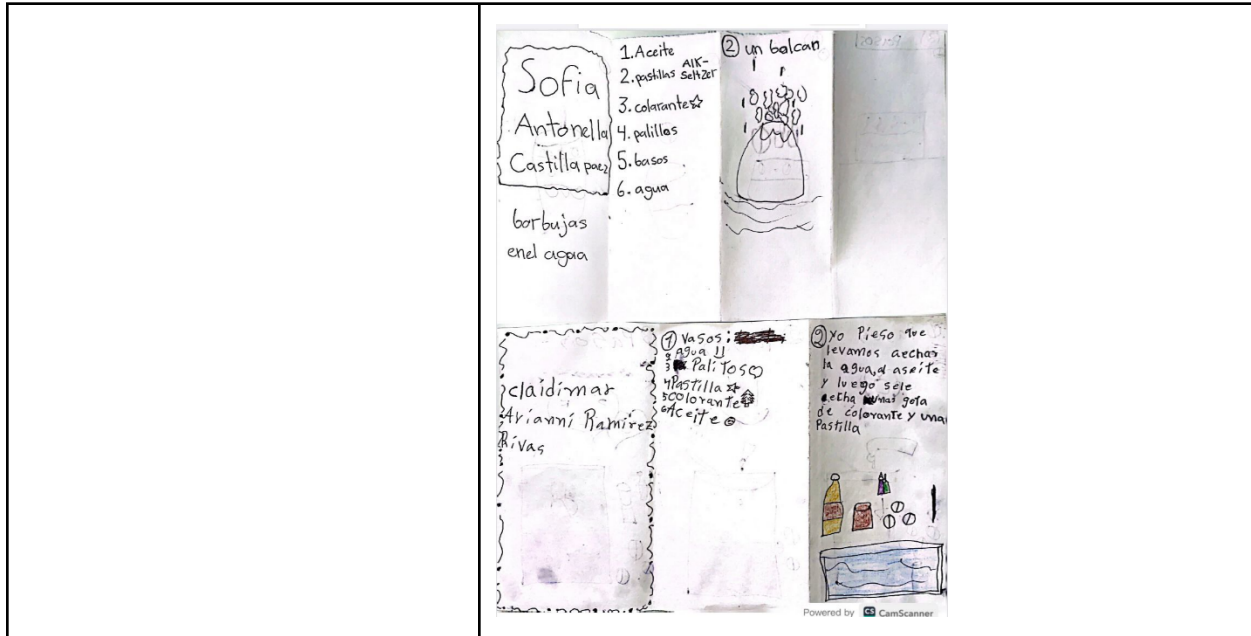 Sofia
Antonella
Castilla paez
borbujas
enel agua
1. Aceite
2. pastillas AlK-
Seltzer
3. colarante
4. palillos
5. basos
6. agua
② un bolcan
claidimar
Arianni Ramirez
Rivas
① Vasos:
2 agua
3 Palitos
4 Pastilla
5 Colorante
6 Aceite
② Yo Pieso que
levamos aechar
la agua, a aseite
y luego sele
aetha unas gota
de colorante y una
Pastilla
Powered by CS CamScanner